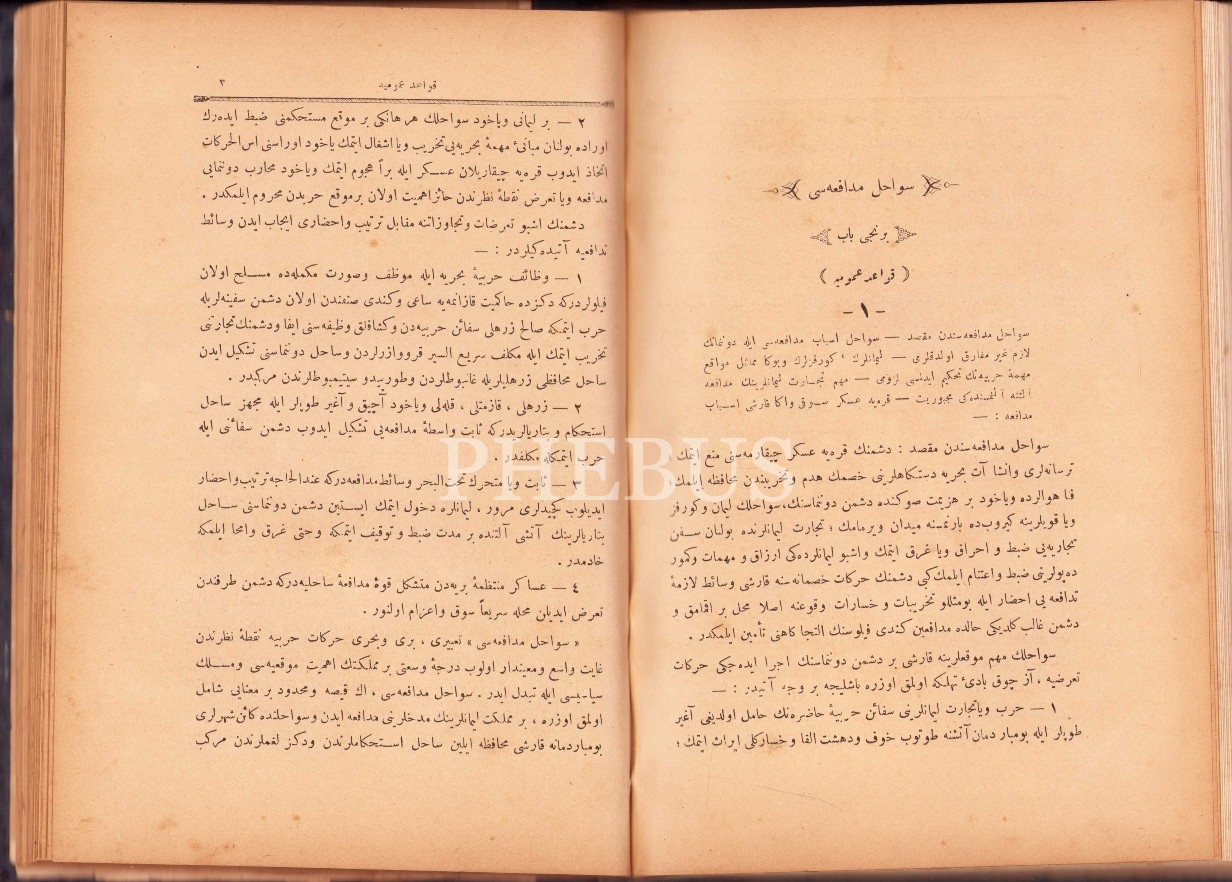 سواحل مدافعه‌سی
برنجی باب
( قواعد عمومیه )
- ۱ -
سواحل مدافعه‌سندن مقصد — سواحل اسباب مدافعه‌سی ایله دوننمانك
لازم غیر مفارق اولدقلری — لیمانلرك ، كورفزلرك وبوكا مماثل مواقع
مهمهٔ حربیه‌نك تحكیم ایدلمسی لزومی — مهم تجارت لیمانلرینك مدافعه
آلتنه آلنمسنده‌كی مجبوریت — قره‌یه عسكر سوقی واكا قارشی اسباب
مدافعه : —
سواحل مدافعه‌سندن مقصد : دشمنك قره‌یه عسكر چیقارمه‌سنی منع ایتمك ،
ترسانه‌لری وانشا آت بحریه دستكاهلرینی خصمك هدم وتخریبندن محافظه ایلمك ؛
فنا هوالرده ویاخود بر هزیمت صوكنده دشمن دوننماسنك، سواحلك لیمان وكورفز
ویا قویلرینه كیروب‌ده بارنمسنه میدان ویرمامك ؛ تجارت لیمانلرنده بولنان سفن
تجاریه‌یی ضبط و احراق ویا غرق ایتمك واشبو لیمانلرده‌كی ارزاق و مهمات وكمور
ده‌پولرینی ضبط واغتنام ایلمك كبی دشمنك حركات خصمانه‌سنه قارشی وسائط لازمهٔ
تدافعه‌یی احضار ایله بومثللو تخریبات و خسارات وقوعنه اصلا محل بر اقمامق و
دشمن غالب كلدیكی حالده مدافعین كندی فیلوسنك التجا كاهنی تأمین ایلمكدر .
سواحلك مهم موقعلرینه قارشی بر دشمن دوننماسنك اجرا ایده‌جكی حركات
تعرضیه ، آز چوق بادئ تهلكه اولمق اوزره باشلیجه بر وجه آتیدر : —
۱ — حرب ویا تجارت لیمانلرینی سفائن حربیهٔ حاضره‌نك حامل اولدیغی آغیر
طوپلر ایله بومباردمان آتشنه طوتوب خوف ودهشت القا و خسار كلی ایراث ایتمك ؛
قواعد عمومیه ۳
۲ — بر لیمانی ویاخود سواحلك هر هانكی بر موقع مستحكمنی ضبط ایده‌رك
اوراده بولنان مبانئ مهمهٔ بحریه‌یی تخریب ویا اشغال ایتمك یاخود اوراسنی اس الحركات
اتخاذ ایدوب قره‌یه چیقاریلان عسكر ایله براً هجوم ایتمك ویاخود محارب دوننمایی
مدافعه ویا تعرض نقطهٔ نظرندن حائز اهمیت اولان بر موقع حربدن محروم ایلمكدر .
دشمنك اشبو تعرضات وتجاوزاتنه مقابل ترتیب واحضاری ایجاب ایدن وسائط
تدافعیه آتیده‌كیلردر : —
۱ — وظائف حربیهٔ بحریه ایله موظف وصورت مكمله‌ده مسلح اولان
فیلولردركه دكزده حاكمیت قازانمه‌یه ساعی وكندی صنفندن اولان دشمن سفینه‌لریله
حرب ایتمكه صالح زرهلی سفائن حربیه‌دن وكشافلق وظیفه‌سنی ایفا ودشمنك تجارتنی
تخریب ایتمك ایله مكلف سریع السیر قرووازرلردن وساحل دوننماسنی تشكیل ایدن
ساحل محافظی زرهلیلریله غانبوطلردن وطورپیدو ستیمبوطلرندن مركبدر .
۲ — زرهلی ، قازمتلی ، قله‌لی ویاخود آچیق و آغیر طوپلر ایله مجهز ساحل
استحكام و بتاریالریدركه ثابت واسطهٔ مدافعه‌یی تشكیل ایدوب دشمن سفائنی ایله
حرب ایتمكله مكلفدر .
۳ — ثابت ویا متحرك تحت‌البحر وسائط مدافعه‌دركه عندالحاجه ترتیب واحضار
ایدیلوب كچیدلری مرور ، لیمانلره دخول ایتمك ایستین دشمن دوننماسنی ساحل
بتاریالرینك آتشی آلتنده بر مدت ضبط و توقیف ایتمكه وحتی غرق وامحا ایلمكه
خادمدر .
٤ — عساكر منتظمهٔ بریه‌دن متشكل قوهٔ مدافعهٔ ساحلیه‌دركه دشمن طرفندن
تعرض ایدیلن محله سریعاً سوق واعزام اولنور .
« سواحل مدافعه‌سی » تعبیری ، بری وبحری حركات حربیه نقطهٔ نظرندن
غایت واسع ومعیندار اولوب درجهٔ وسعتی بر مملكتك اهمیت موقعیه‌سی ومسلك
سیاسیسی ایله تبدل ایدر . سواحل مدافعه‌سی ، اك قیصه ومحدود بر معنایی شامل
اولمق اوزره ، بر مملكت لیمانلرینك مدخلرینی مدافعه ایدن وسواحلنده كائن شهرلری
بومباردمانه قارشی محافظه ایلین ساحل استحكاملرندن ودكز لغملرندن مركب
PHEBUS